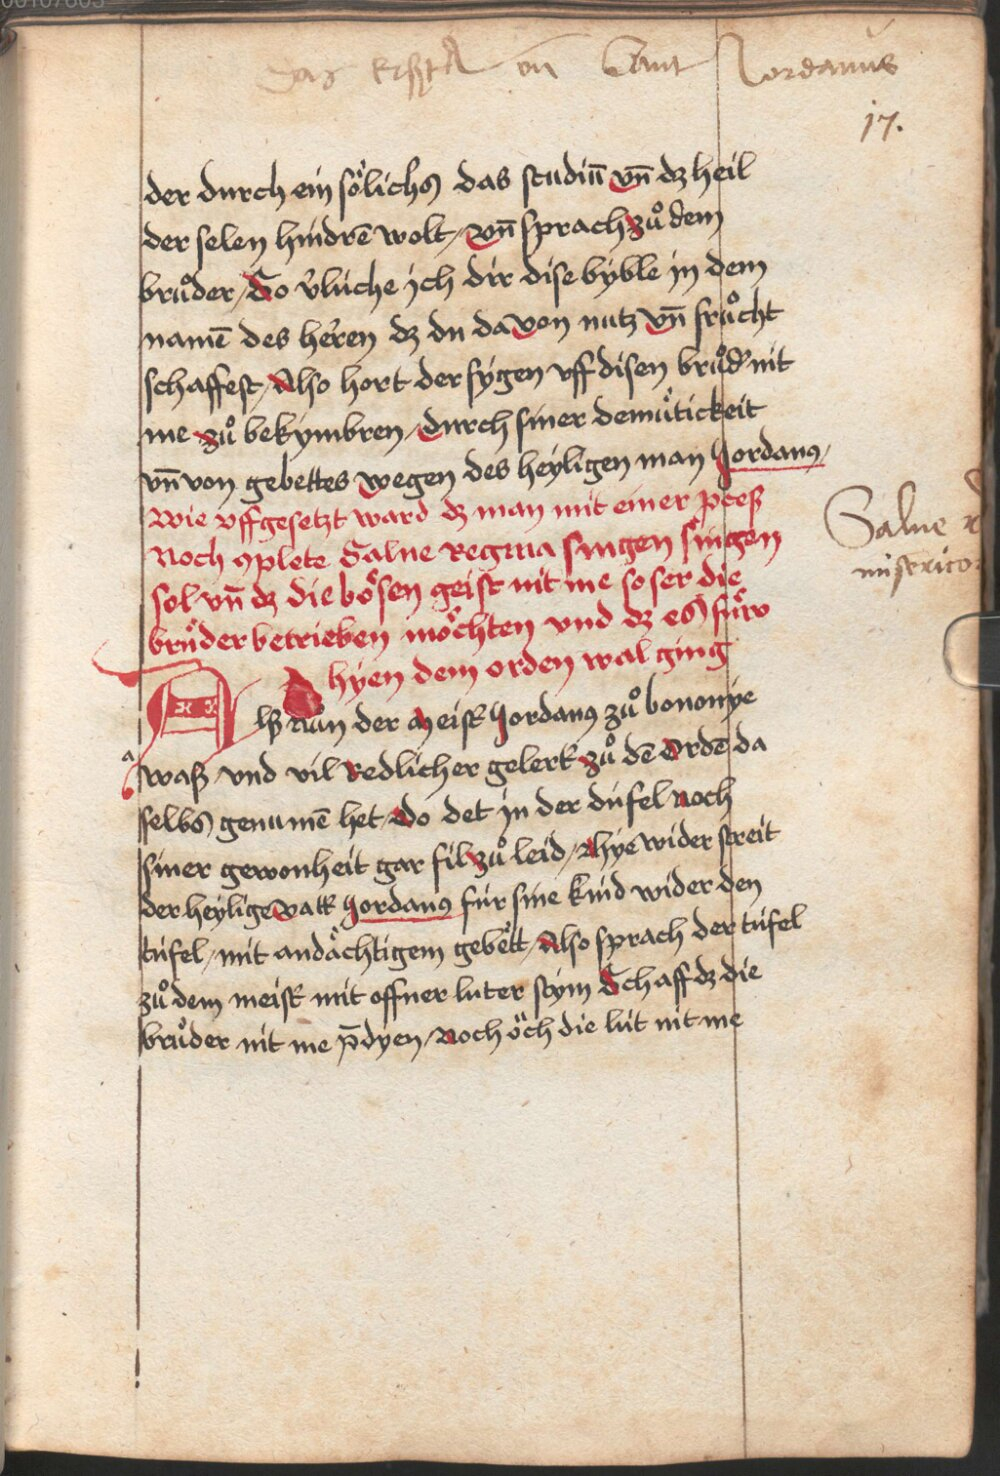 Das erst  vn̄ Sant Jordanus
17.
der durch ein sölichs das studiū vn̄ dz heil
der selen hindrē wolt / vn̄ sprach zuͦ dem
bruͦder / So v̓luͤche ich dir dise byble in dem
namē des heren dz du da von nutz vn̄ fruͦcht
schaffest / Also hort der sygen vff disen bruͦd̓ nit
me zuͦ bekymbren / durch siner demuͤtickeit
vn̄ von gebettes wegen des heyligen man Jordanꝯ /
Wie vffgesetzt ward dz man mit einer ꝓceß
Noch ꝯplete Salue Regina singen singen
sol vn̄ dz die bösen geist nit me so ser die
bruͤder betrieben möchten vnd dz es fuͤr
hyen dem orden wal ging
Alß nuͦn der meist̓ Jordanꝯ zuͦ bononye
waß vnd vil redlicher gelert̓ zuͦ dē ordē da
selbs genumē het / do det in der düfel noch
siner gewonheit gar fil zuͦ leid / Ahye wider streit
der heylige vatt̓ Jordanꝯ für sine kind wider den
tüfel / mit andächtigem gebett / Also sprach der tüfel
zuͦ dem meist̓ mit offner luter stym Schaff dz die
bruͦder nit me p̄dyen / noch öch die lüt nit me
Salue